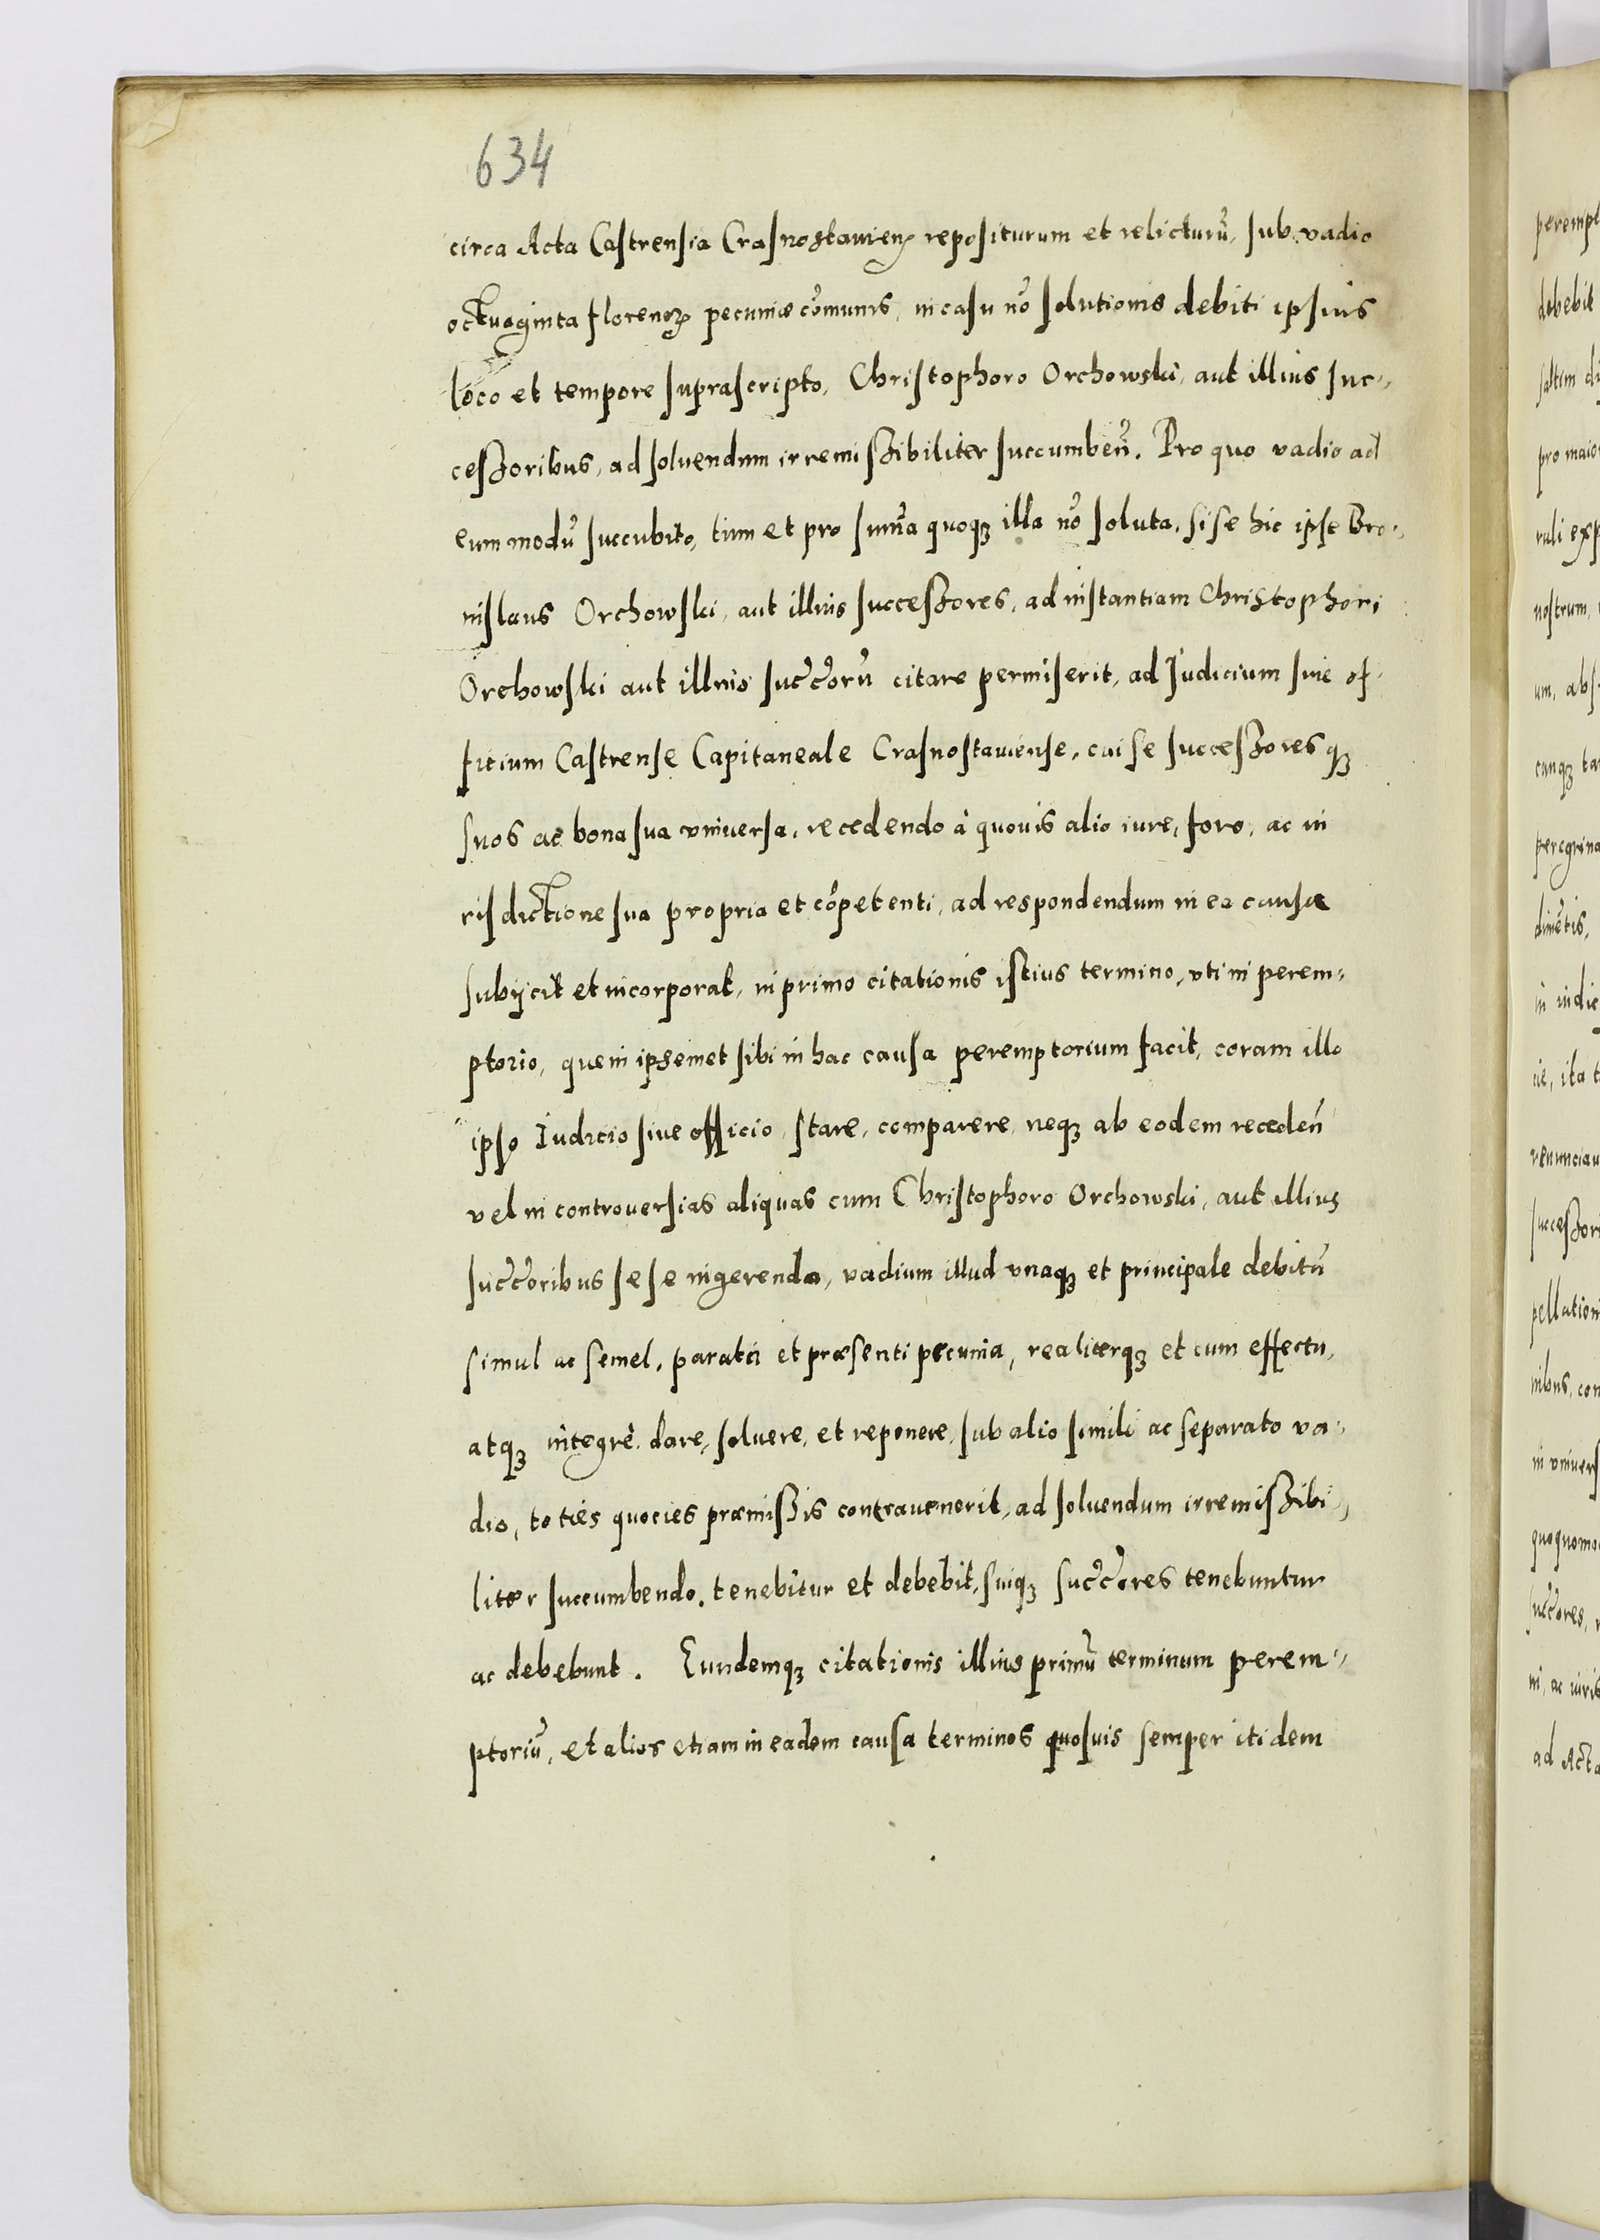 634
circa Acta Castrensia Crasnostauieñ repositurum et relicturũ, sub vadio
octuaginta florenoꝝ pecuniæ cõmunis, in casu nõ solutionis debiti ipsius
loco et tempore suprascripto, Christophoro Orchowski, aut illius suc-
cessoribus, ad soluendum irremissibiliter succumbeñ. Pro quo vadio ad
eum modũ succubito, tum et pro sum̃a quoqꝫ illa nõ soluta, si se hic ipse Bro-
nislaus Orchowski, aut illius successores, ad instantiam Christophori
Orchowski aut illius succ̃corũ citare permiserit, ad Judicium siue of-
ficium Castrense Capitaneale Crasnostauiense, cui se successoresqꝫ
suos ac bona sua vniuersa, recedendo à quouis alio iure, foro, ac iu
risdictione sua propria et cõpetenti, ad respondendum in ea causa
subijcit et incorporat, in primo citationis istius termino, vti in perem-
ptorio, quem ipsemet sibi in hac causa peremptorium facit, coram illo
ipso Iudicio siue officio stare, comparere, neqꝫ ab eodem recedeñ
vel in controuersias aliquas cum Christophoro Orchowski, aut illius
succ̃coribus sese ingerendo, vadium illud vnaqꝫ et principale debitũ
simul ac semel, parata et præsenti pecunia, realiterqꝫ et cum effectu,
atqꝫ integrè dare, soluere, et reponere, sub alio simili ac separato va-
dio, toties quocies præmissis contrauenerit, ad soluendum irremissibi-
liter succumbendo, tenebitur et debebit, suiqꝫ succ̃cores tenebuntur
ac debebunt. Eundemqꝫ citationis illius primũ terminum perem-
ptoriũ, et alios etiam in eadem causa terminos quosuis semper itidem
debebit
saltim
pro maio
nostrum,
um, abs
peregrina
in iudic
ita
renunciau
successori
pellation
nibus, con
in vniuers
quoquomo
succ̃cores,
ni, ac iuris
ad Acta